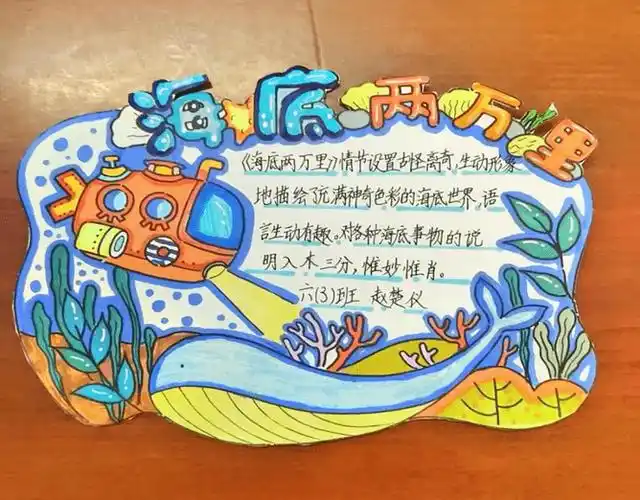 海底两万里
《海底两万里》情节设置古怪离奇，生动形象
地描绘了充满神奇色彩的海底世界，语
言生动有趣。对各种海底事物的说
明入木三分，惟妙惟肖。
六(3)班 赵楚仪